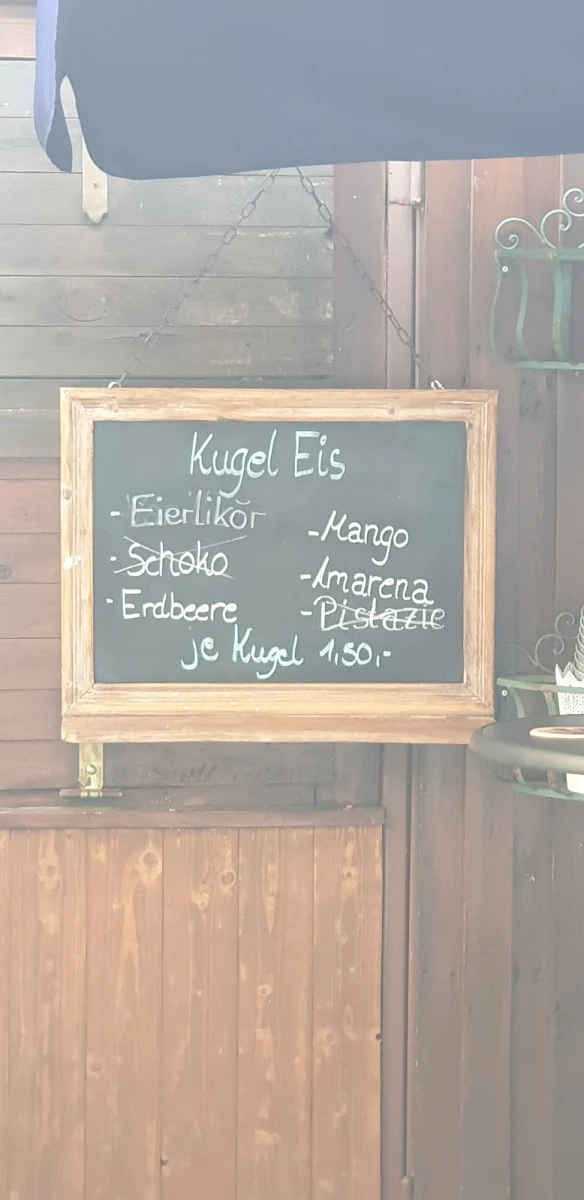 Kugel Eis
- Eierlikör
- Schoko
- Erdbeere
- Mango
- Amarena
- Pistazie
je Kugel 1,50,-